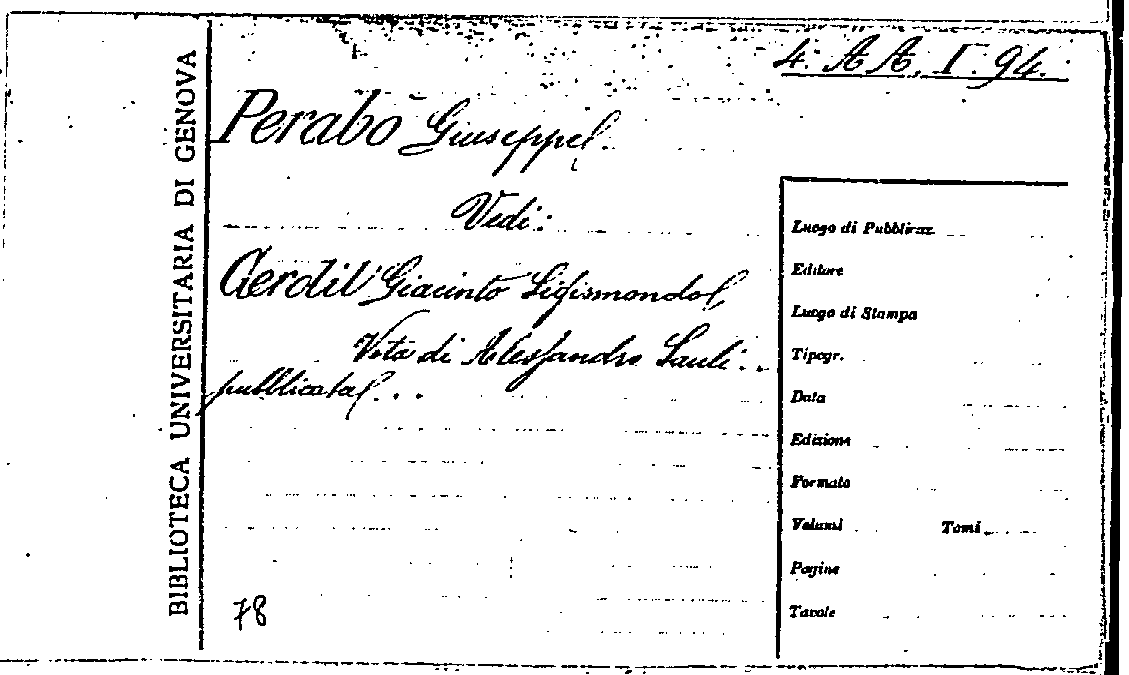 4. A A. I. 94.
BIBLIOTECA UNIVERSITARIA DI GENOVA
Perabò Giuseppe.
Vedi:
Gerdil Giacinto Sigismondo,
Vita di Alessandro Sauli...
pubblicata...
78
Luogo di Pubblicaz.
Editore
Luogo di Stampa
Tipogr.
Data
Edizione
Formato
Volumi Tomi
Pagine
Tavole